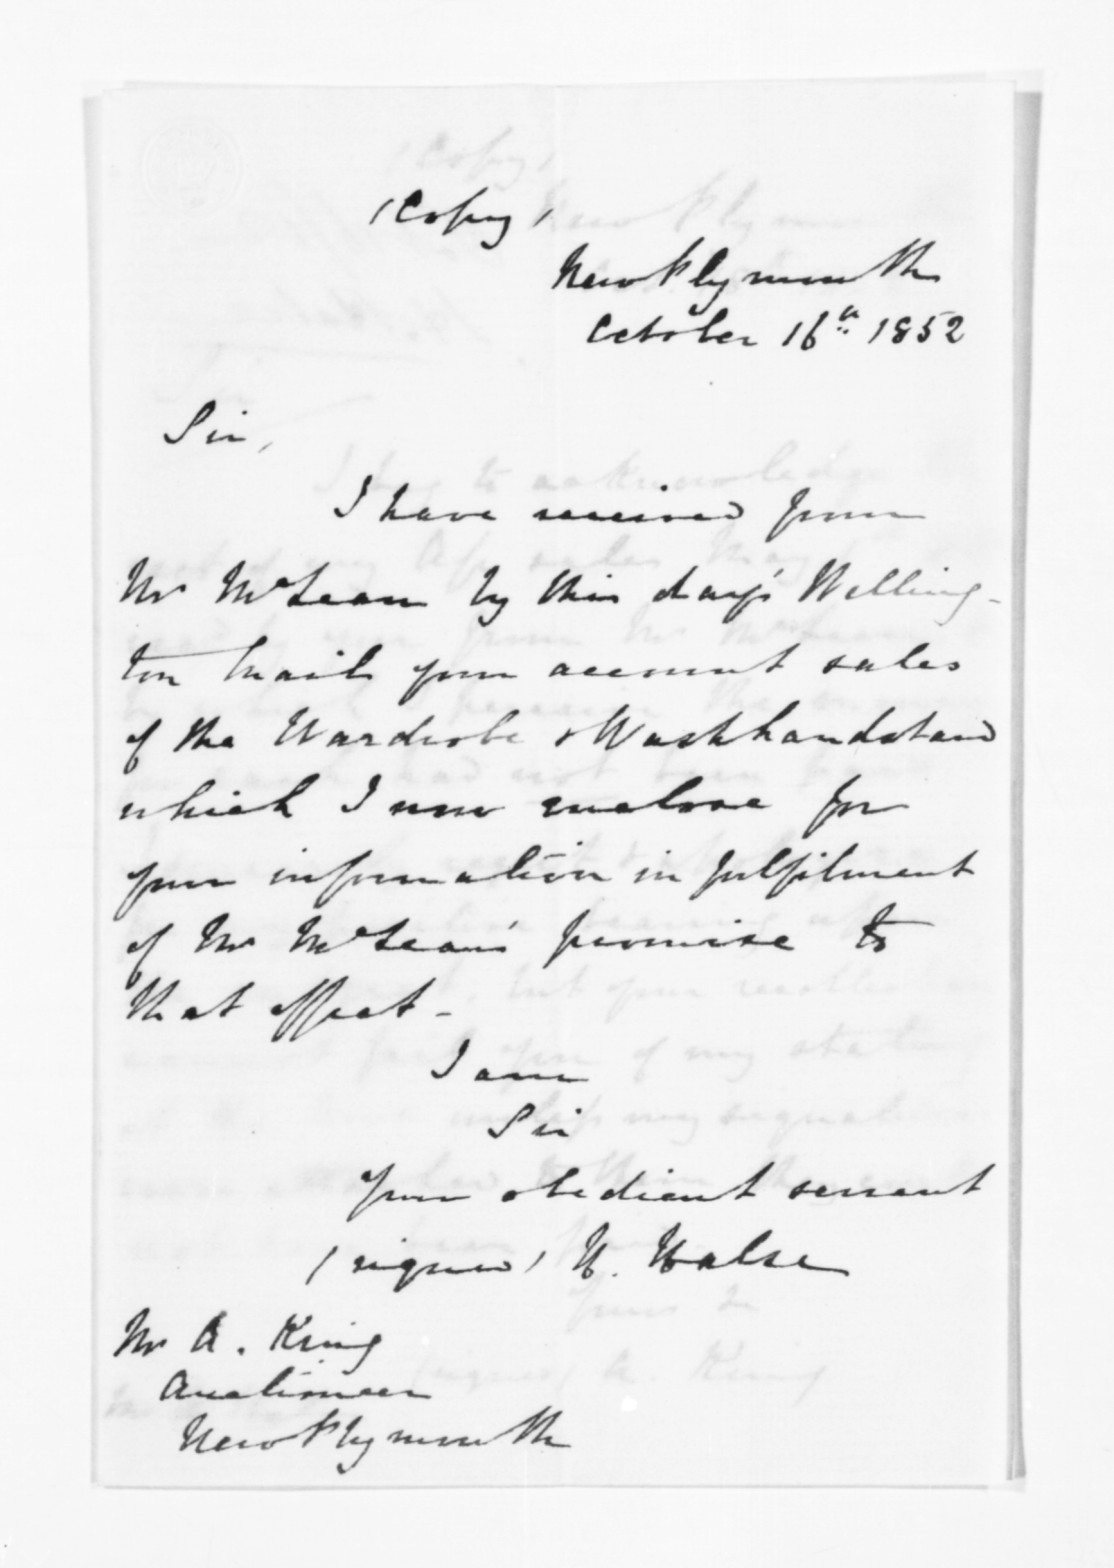 (Copy)
New Plymouth
October 16th 1852
Sir,
I have received from
Mr McLean by this day's Welling-
ton Mail your account sales
of the Wardrobe & Washhandstand
which I now enclose for
your information in fulfilment
of Mr McLean's promise to
that effect -
I am
Sir
Your obedient servant
(signed) H. Halse
Mr A. King
Auctioneer
New Plymouth